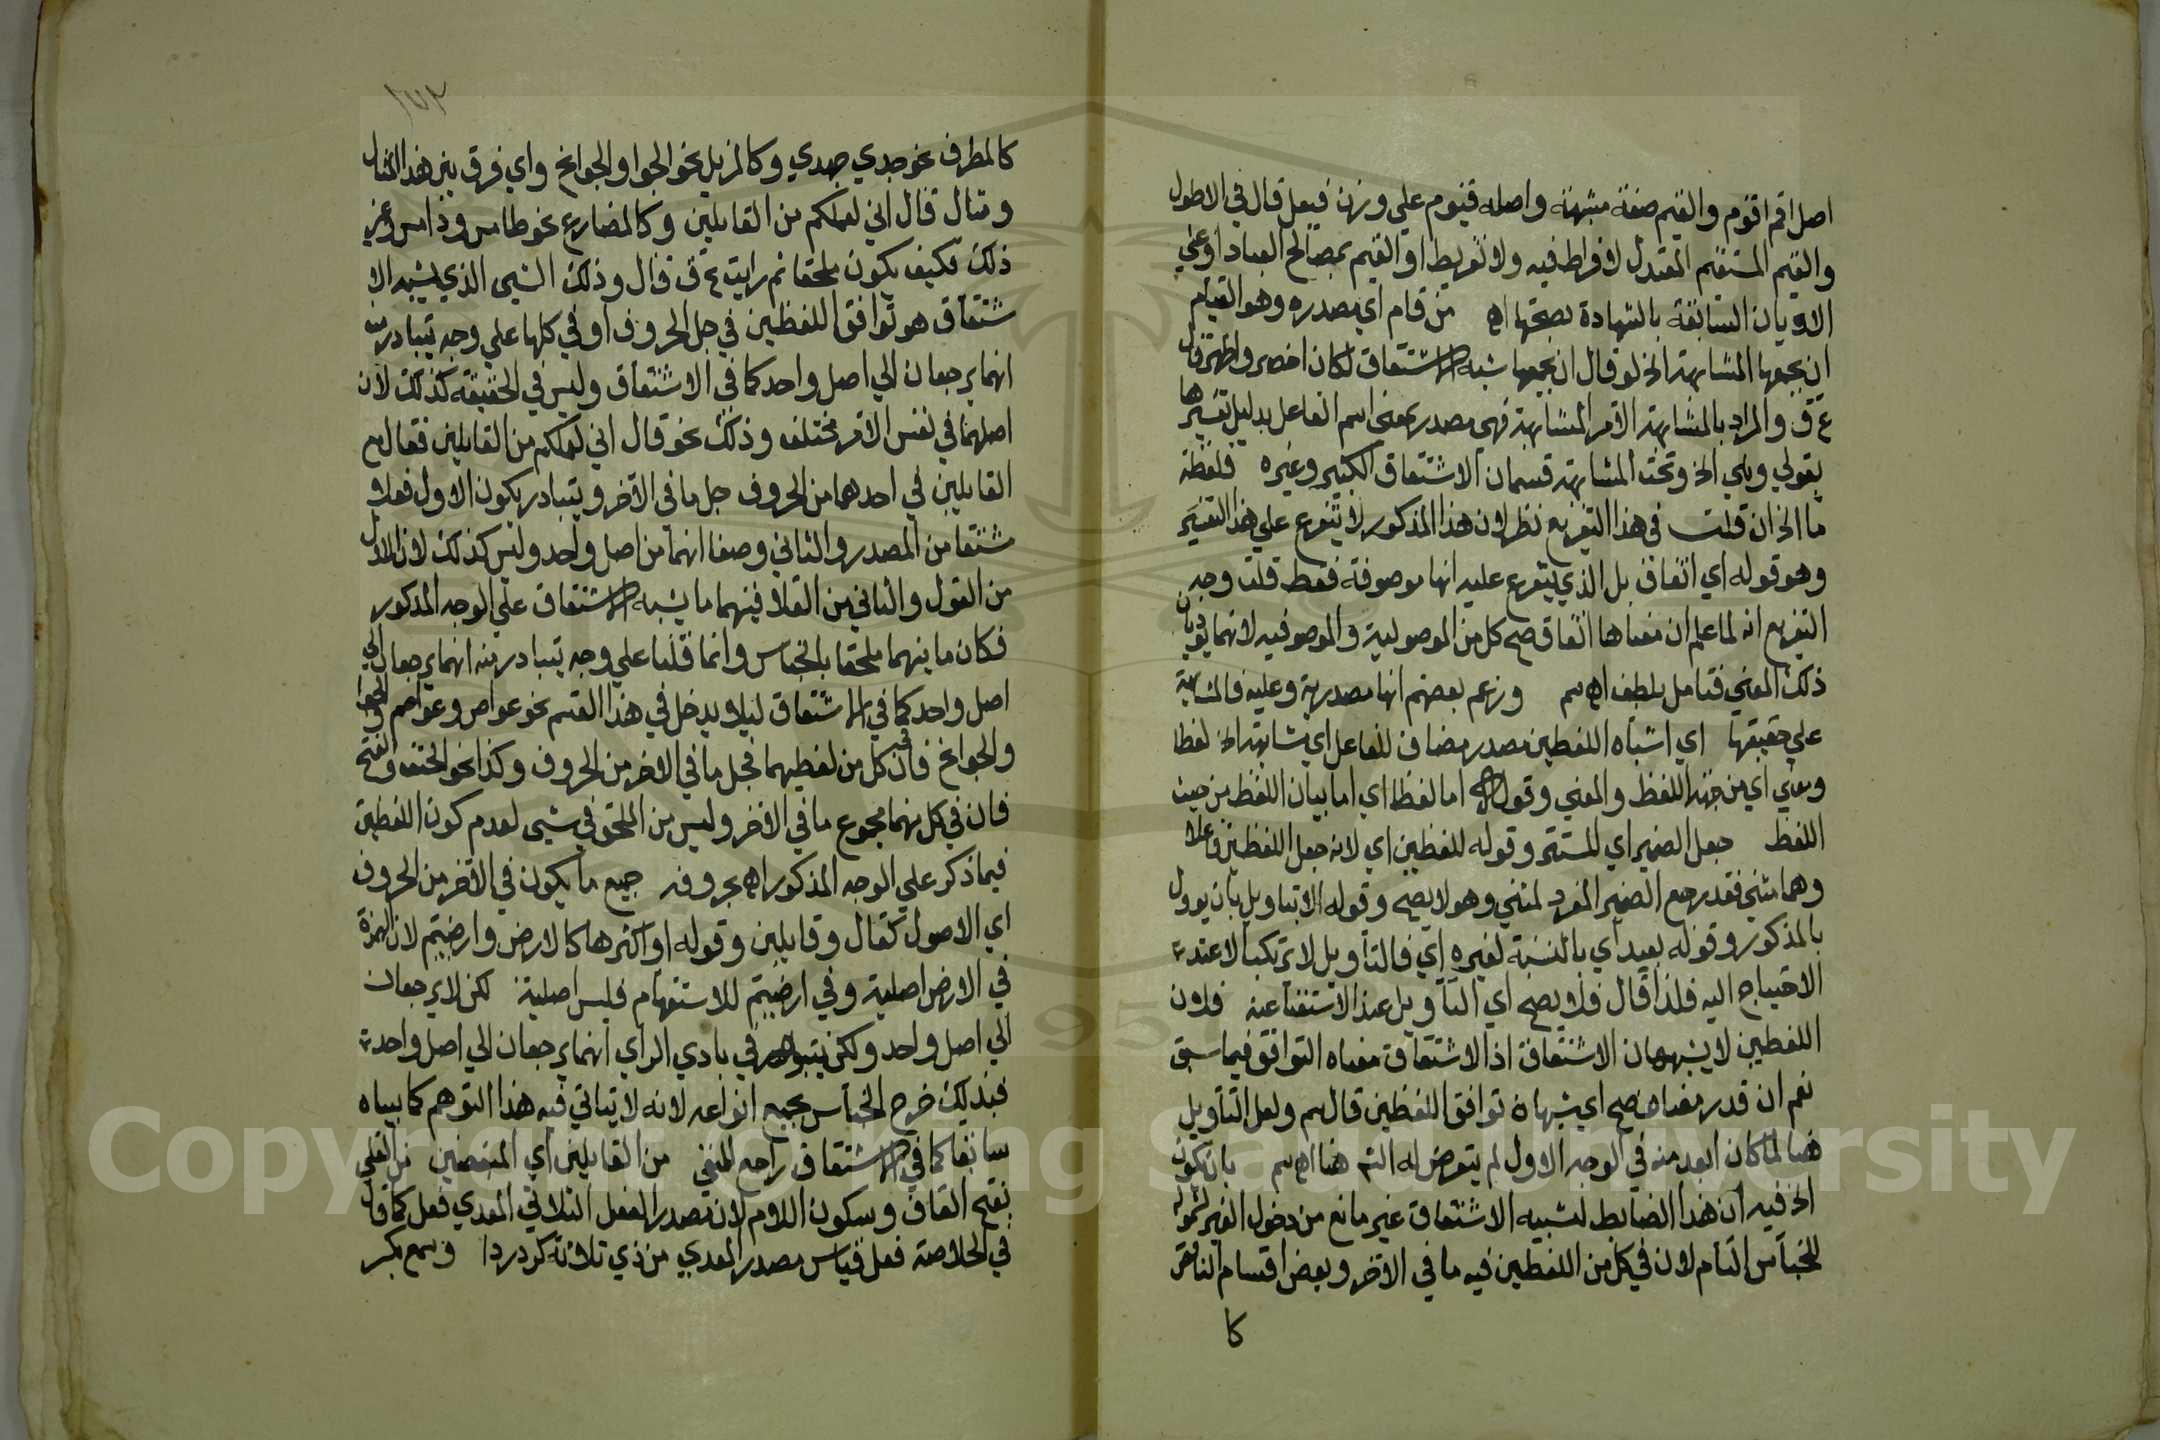 اصل اقم اقوم والقيم صفة مشبهة واصله قيوم علي وزن فيعل قال في الاطول
والقيم المستقيم المعتدل لا افراط فيه ولا تفريط او القيم بمصالح العباد او علي
الاديان السابقة بالشهادة بصحتها اه من قام اي مصدره وهو القيام
ان يجمعها المشابهة الخ لو قال ان يجمعها شبه الاشتقاق لكان اخصر واظهر قال
ع ق والمراد بالمشابهة الامر المشابه فهي مصدر بمعني اسم الفاعل بدليل تفسيرها
بقولي وهي الخ وتحت المشابهة قسمان الاشتقاق الكبير وغيره فلفظة
ما الخ ان قلت في هذا التفريع نظر لان هذا المذكور لا يتفرع علي هذا التفسير
وهو قوله اي اتفاق بل الذي يتفرع عليه انها موصوفة فقط قلت وجه
التفريع انه لما علم ان معناها اتفاق صح كل من الموصولية والموصوفية لانهما يؤديان
ذلك المعني فتامل بلطف اه سم وزعم بعضهم انها مصدرية وعليه فالمشابهة
علي حقيقتها اي اشباه اللفظين مصدر مضاف للفاعل اي مشابهة الخ لفظا
ومعني اي من جهة اللفظ والمعني وقوله اما لفظا اي اما بيان اللفظ من حيث
اللفظ جعل الضمير اي المستتر وقوله للفظين اي لانه جعل اللفظين فاعلا
وهما مثني فقد رجع الضمير المفرد لمثني وهو لا يصح وقوله الا بتاويل بان يوول
بالمذكور وقوله بعيد اي بالنسبة لغيره اي فالتأويل لا يرتكب الا عند
الاحتياج اليه فلذا قال فلا يصح اي التأويل عند الاستغناء عنه فلان
اللفظين لا يشبهان الاشتقاق اذ الاشتقاق معناه التوافق فيما سبق
نعم ان قدر مضاف صح اي يشبهان توافق اللفظين قال سم ولعل التأويل
هنا لما كان ابعد منه في الوجه الاول لم يتعرض له الش هنا اه سم بان يكون
الخ فيه ان هذا الضابط لشبيه الاشتقاق غير مانع من دخول الغير لشموله
للجناس التام لان في كل من اللفظين فيه ما في الاخر وبعض اقسام الناقص
كا
١٧٣
كالمطرف نحو جدي جهدي وكالمزيل نحو الجوا والجوانح واي فرق بين هذا المثال
ومثال قال اني لعملكم من القالين وكالمضارع نحو طامس ودامس وغير
ذلك فكيف يكون ملحقا ثم رايت ع ق قال وذلك الشي الذي يشبه الا
شتقاق هو توافق اللفظين في جل الحروف او في كلها علي وجه يتبادر منه
انهما يرجعان الي اصل واحد كما في الاشتقاق وليس في الحقيقة كذلك لان
اصلهما في نفس الامر مختلف وذلك نحو قال اني لعملكم من القالين فقال مع
القالين في احدهما من الحروف جل ما في الاخر ويتبادر بكون الاول فعلا و
مشتقا من المصدر والثاني وصفا انهما من اصل واحد وليس كذلك لان الاول
من القول والثاني من القلا ففيهما ما يشبه الاشتقاق علي الوجه المذكور
فكان ما بينهما ملحقا بالجناس وانما قلنا علي وجه يتبادر منه انهما يرجعان الي
اصل واحد كما في الاشتقاق ليلا يدخل في هذا القسم نحو عواص وعواصم والجوا
والجوانح فان في كل من لفظيهما جل ما في الاخر من الحروف وكذا نحو الحتف والفتح
فان في كل منهما مجموع ما في الاخر وليس من الملحق في شيي لعدم كون اللفظين
فيما ذكر علي الوجه المذكور اه بحروفه جميع ما يكون في الاخر من الحروف
اي الاصول كقال وقالين وقوله او اكثرها كالارض وارضيتم لان الهمزة
في الارض اصلية وفي ارضيتم للاستفهام فليس اصلية لكن لا يرجعان
الي اصل واحد ولكن يتبادر في بادي الراي انهما يرجعان الي اصل واحد
فبذلك خرج الجناس بجميع انواعه لانه لا يتاتي فيه هذا التوهم كما بيناه
سابقا كما في الاشتقاق راجع للمنفي من القالين اي المبغضين من القلي
بفتح القاف وسكون اللام لان مصدر الفعل الثلاثي المعدي فعل كما قال
في الخلاصة فعل قياس مصدر المعدي من ذي ثلاثة كرد ردا وسمع بكسر